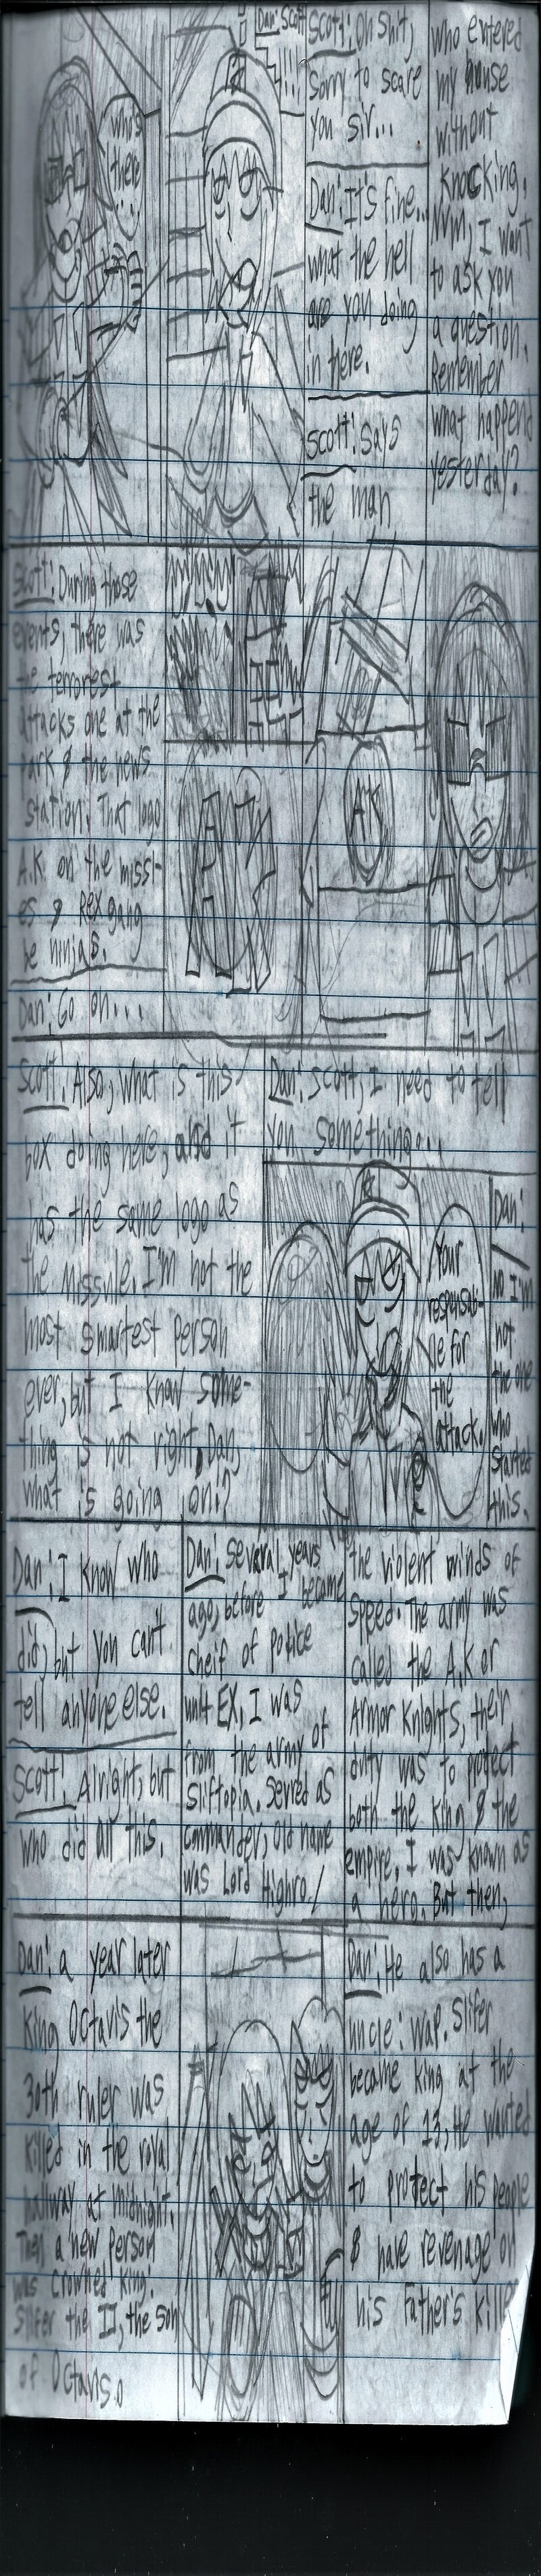 who's
there
...
Dan: Scott
Scott: Oh shit,
sorry to scare
you sir...
Dan: It's fine...
what the hell
are you doing
in here.
Scott: Says
the man
who entered
my house
without
knocking.
I want
to ask you
a question.
Remember
what happend
yesterday?
Scott: During those
events, there was
the terrorest
attacks one at the
Park & the news
station. That logo
A.K. on the missl-
es & Rex gang
be ninjas.
Dan: Go on...
Scott: Also, what is this
box doing here, and it
has the same logo as
the missile. I'm not the
most smartest person
ever, but I know some-
thing is not right, Dan
what is going on!?
Dan: Scott, I need to tell
you something...
Your
responsib-
le for
the
attack.
Dan:
no I'm
not
the one
who
started
this.
Dan: I know who
did, but you can't
tell anyone else.
Scott: Alright, but
who did all this.
Dan: Several years
ago, before I became
cheif of police
unit EX, I was
from the army of
Sliftopia. Served as
commander, old name
was Lord Highro./
the violent winds of
speed. The army was
called the A.K or
Armor Knights, their
duty was to protect
both the King & the
empire. I was known as
a hero. But then,
Dan: a year later
King Octavis the
30th ruler was
killed in the royal
hallway at midnight.
Then a new person
was crowned king.
Slifer the II, the son
of Octavis.
Dan: He also has a
uncle: Wap. Slifer
became king at the
age of 13, He wanted
to protect his people
& have revenage on
his Father's killer